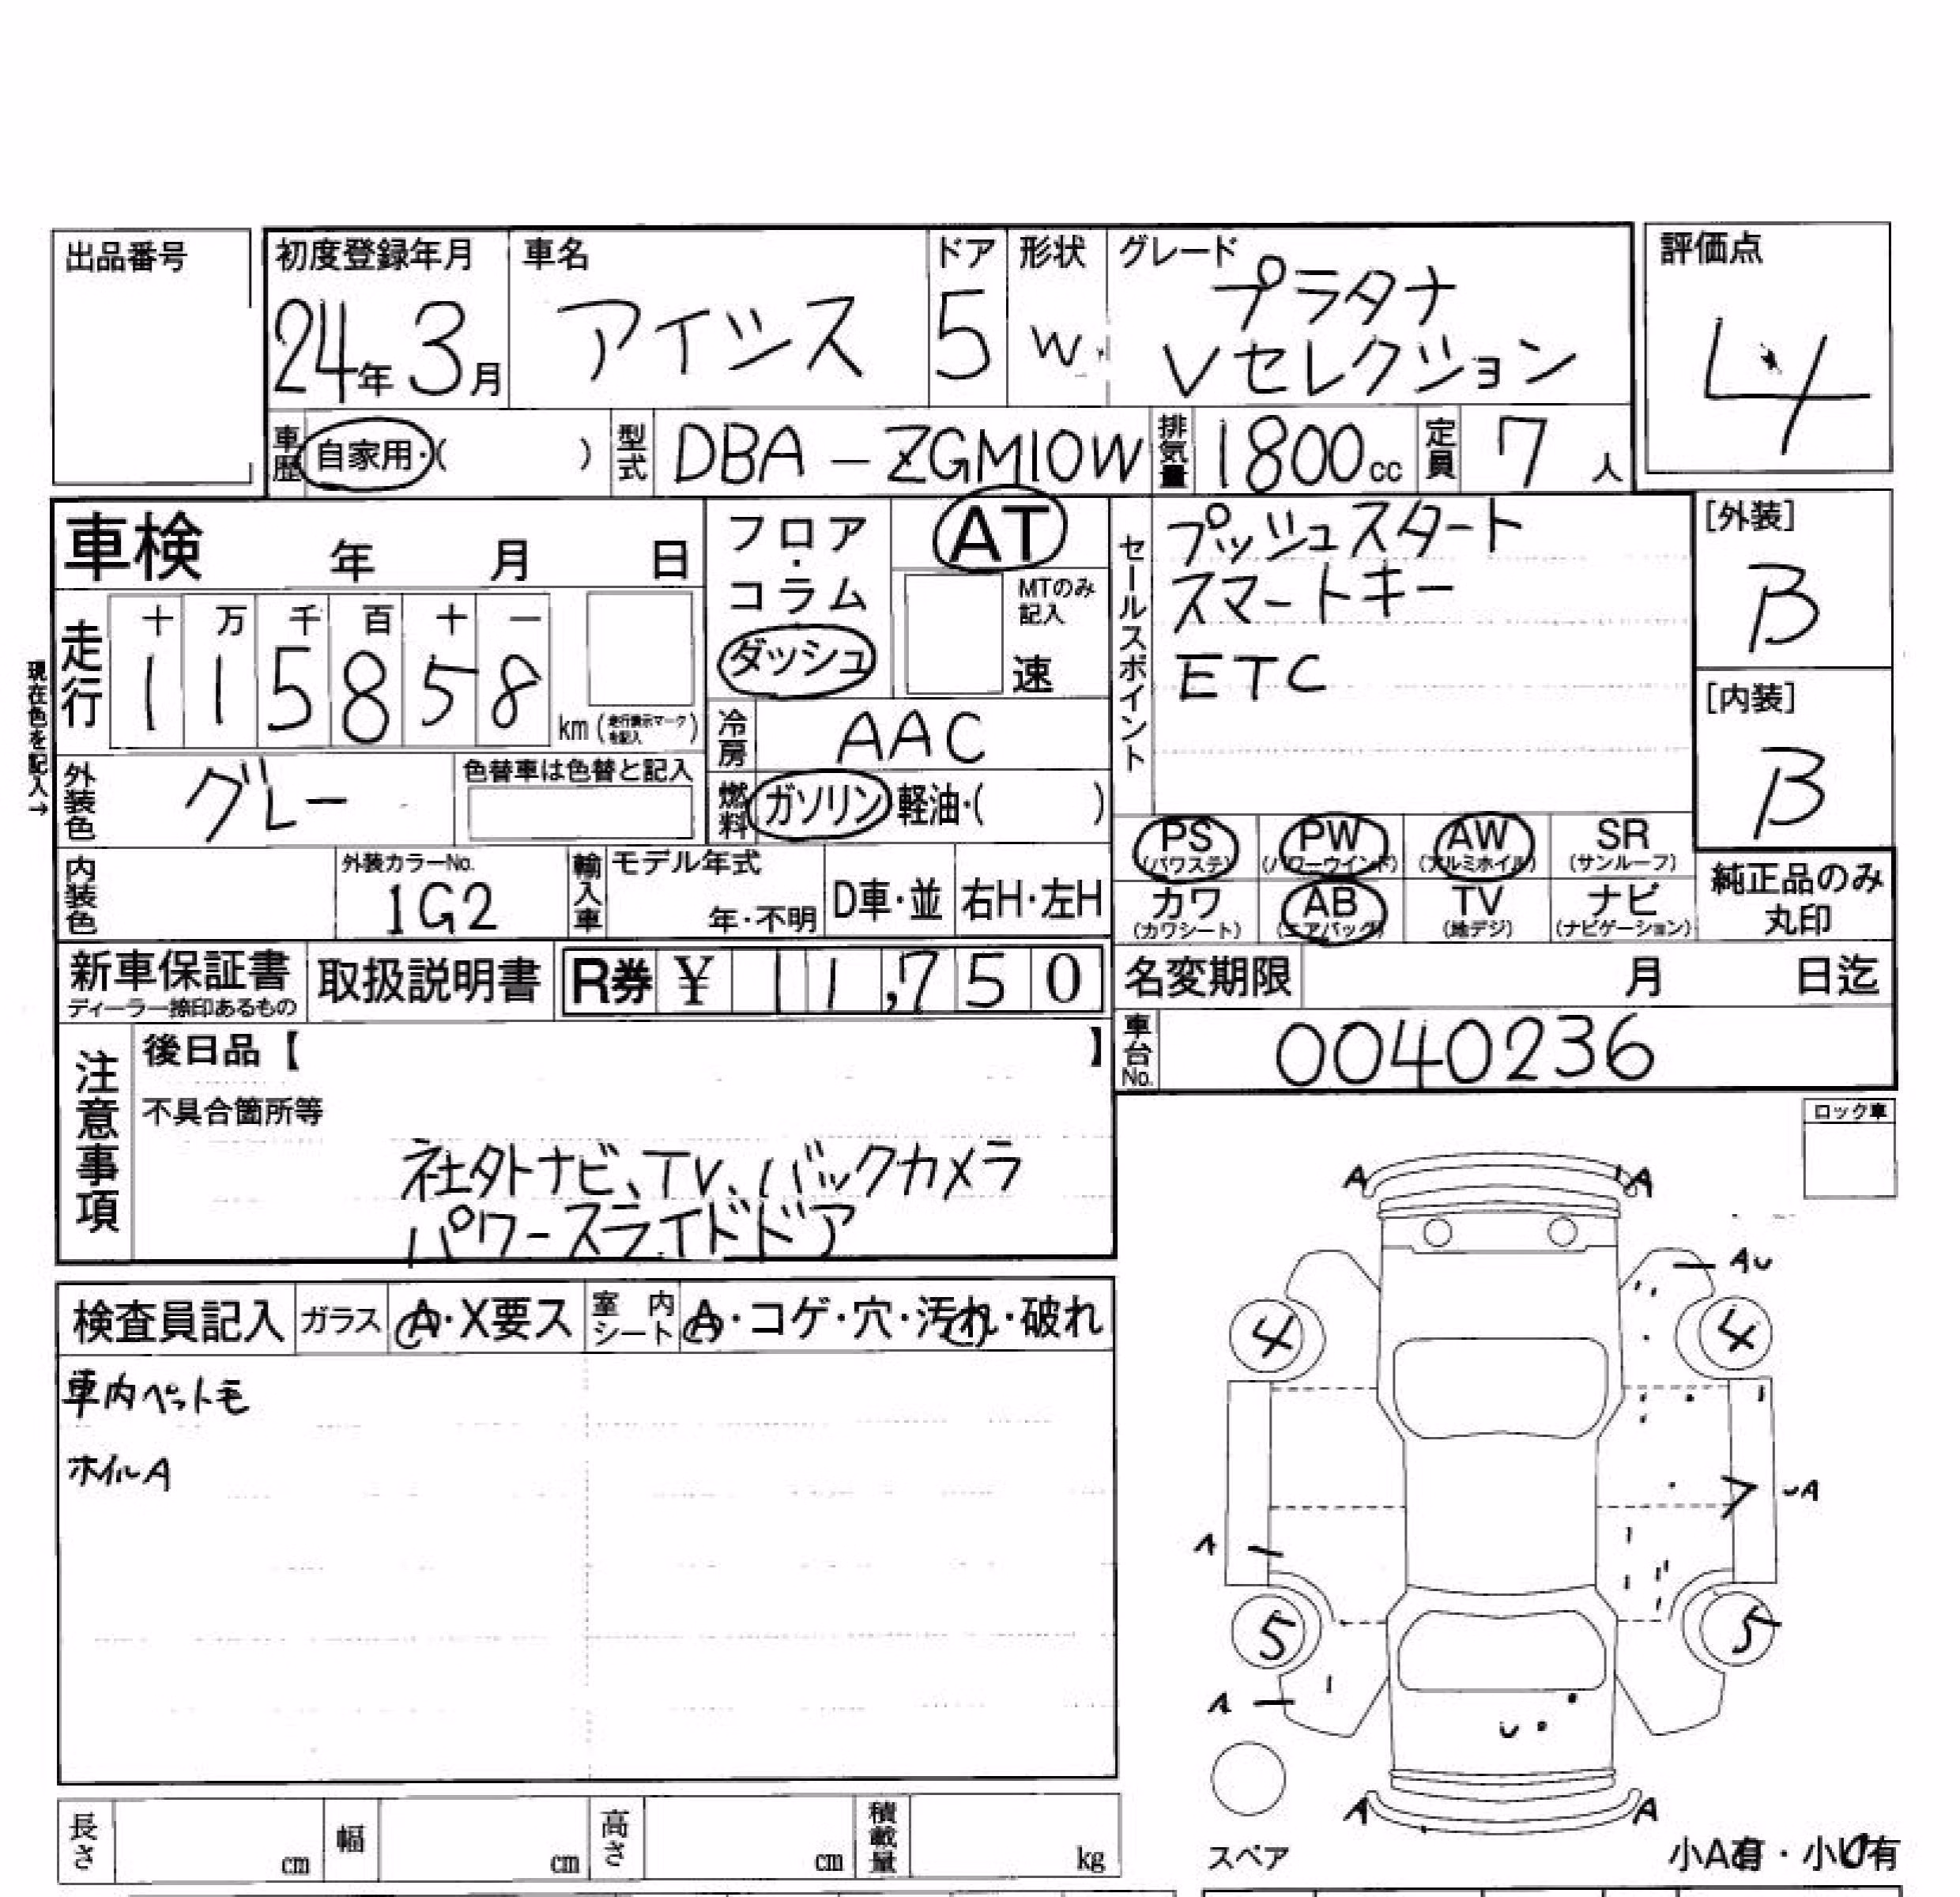 出品番号
初度登録年月 車名 ドア 形状 グレード 評価点
24年3月 アイシス 5 W プラタナ
Vセレクション
4
車歴 自家用・( ) 型式 DBA-ZGM10W 排気量 1800cc 定員 7人
車検 年 月 日
フロア・コラム ダッシュ
AT
MTのみ記入
速
セールスポイント
プッシュスタート
スマートキー
ETC
[外装]
B
[内装]
B
現在色を記入→
走行 十 万 千 百 十 一
1 1 5 8 5 8 km (走行表示マークを記入)
冷房 AAC
外装色 グレー 色替車は色替と記入
燃料 ガソリン 軽油・( )
PS (パワステ) PW (パワーウインド) AW (アルミホイル) SR (サンルーフ)
カワ (カワシート) AB (エアバッグ) TV (地デジ) ナビ (ナビゲーション)
純正品のみ
丸印
内装色 外装カラーNo. 1G2 輸入車 モデル年式 年・不明 D車・並 右H・左H
新車保証書 取扱説明書 R券 ¥ 11,750 名変期限 月 日迄
ディーラー捺印あるもの
車台No. 0040236
注意事項
後日品【 】
不具合箇所等
社外ナビ、TV、バックカメラ
パワースライドドア
ロック車
検査員記入 ガラス A・X要ス 室内シート A・コゲ・穴・汚れ・破れ
車内ペット毛
ホイルA
A A
AU
4 4
UA
A
5 5
A
U
A A
スペア
小A有・小U有
長さ cm 幅 cm 高さ cm 積載量 kg